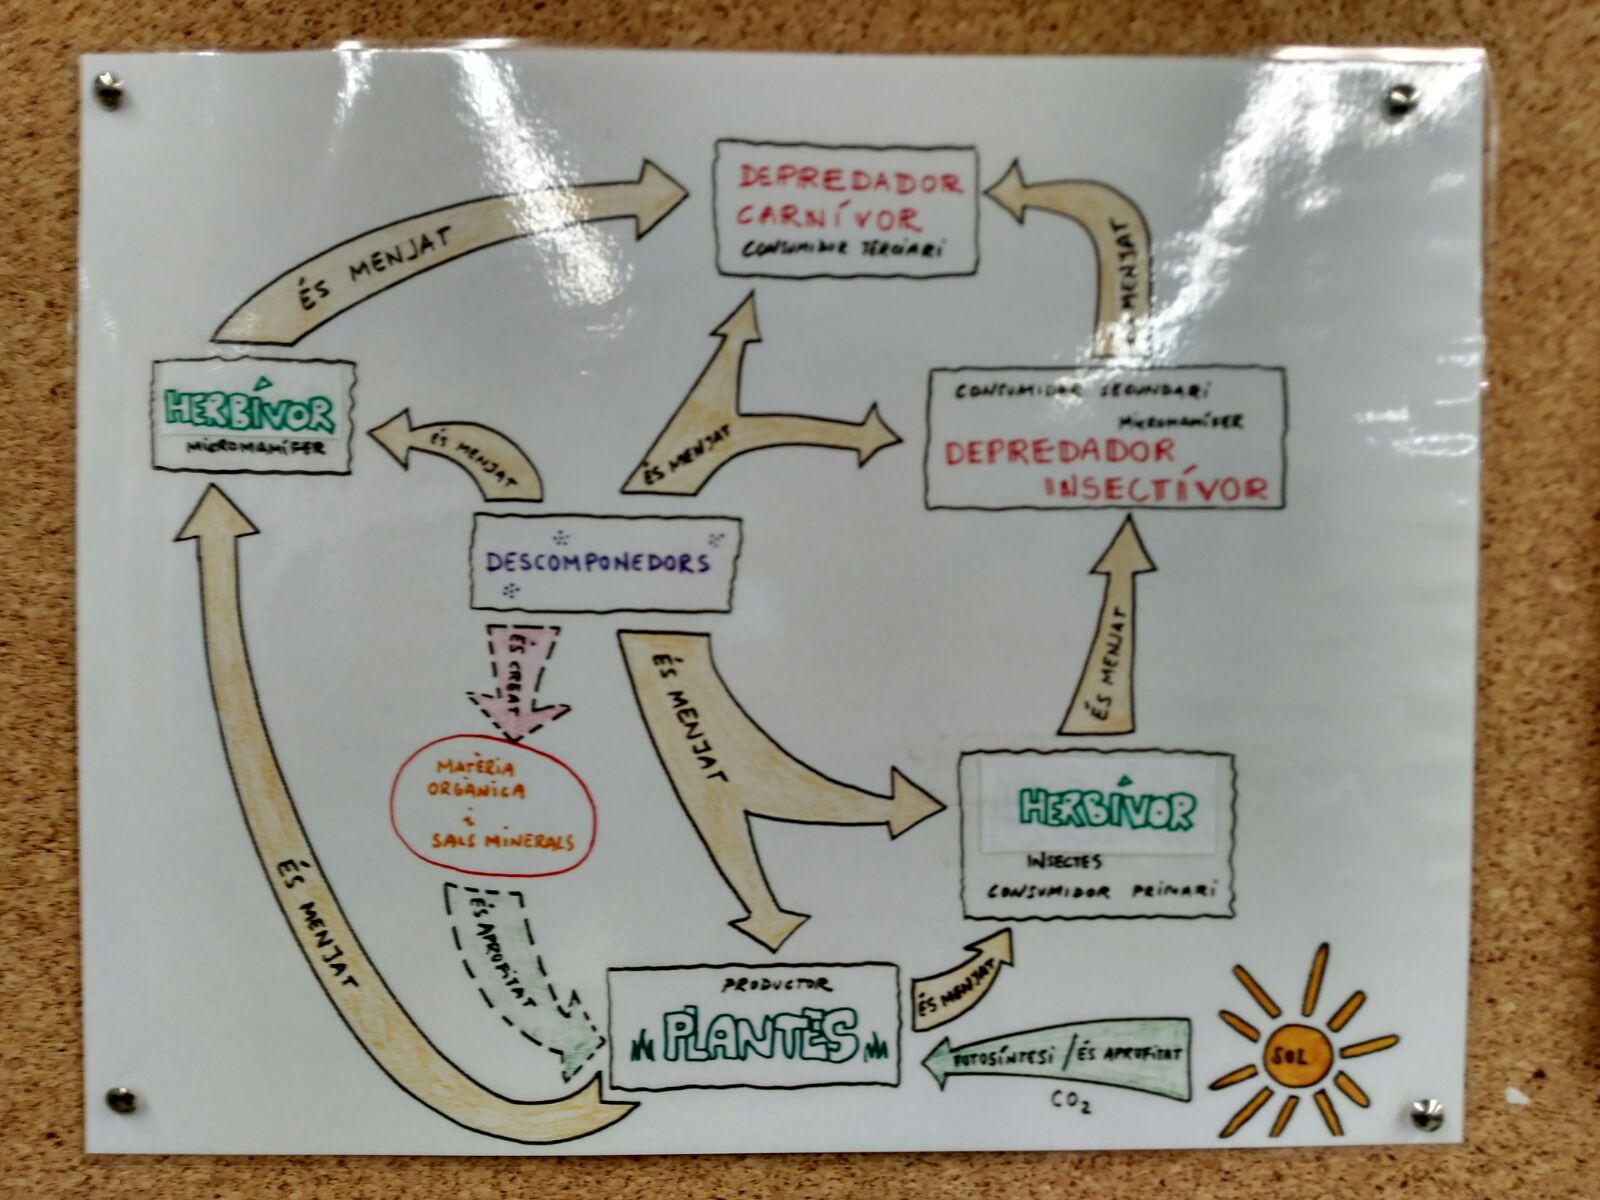 DEPREDADOR
CARNÍVOR
CONSUMIDOR TERCIARI
ÉS MENJAT
MENJAT
HERBÍVOR
MICROMAMÍFER
ÉS MENJAT
ÉS MENJAT
CONSUMIDOR SEGUNDARI
MICROMAMÍFER
DEPREDADOR
INSECTÍVOR
DESCOMPONEDORS
ÉS CREAT
ÉS MENJAT
ÉS MENJAT
MATÈRIA
ORGÀNICA
i
SALS MINERALS
HERBÍVOR
INSECTES
CONSUMIDOR PRIMARI
ÉS MENJAT
ÉS APROFITAT
PRODUCTOR
PLANTES
ÉS MENJAT
FOTOSÍNTESI / ÉS APROFITAT
CO2
SOL